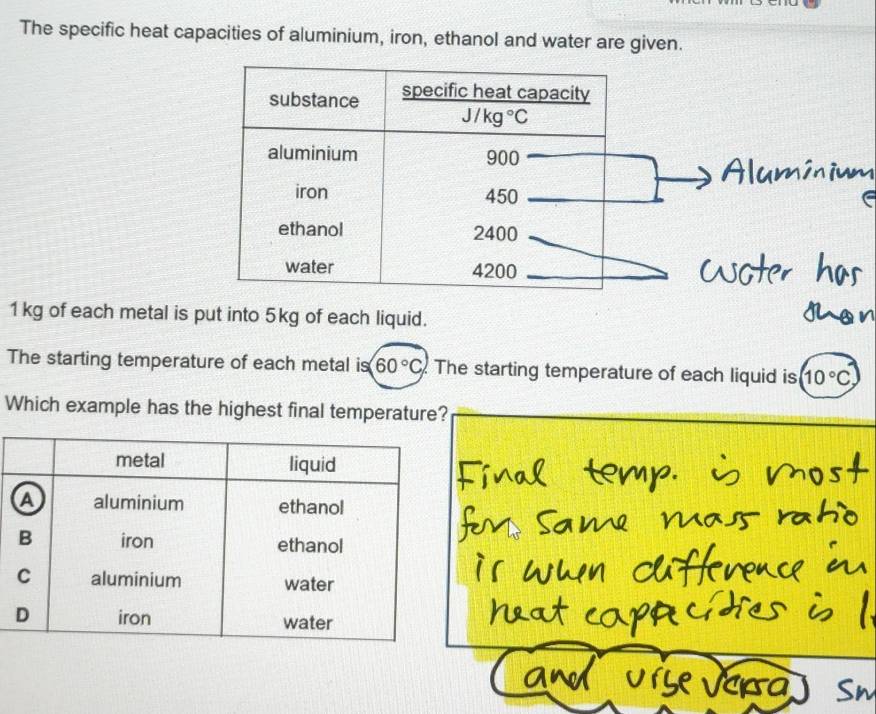 The specific heat capacities of aluminium, iron, ethanol and water are given.
substance specific heat capacity
J/kg °C
aluminium 900
iron 450
ethanol 2400
water 4200
Aluminium
water has
than
1 kg of each metal is put into 5 kg of each liquid.
The starting temperature of each metal is 60 °C. The starting temperature of each liquid is 10 °C.
Which example has the highest final temperature?
metal liquid
A aluminium ethanol
B iron ethanol
C aluminium water
D iron water
Final temp. is most
for same mass ratio
is when difference in
heat capacities is
and vise versa